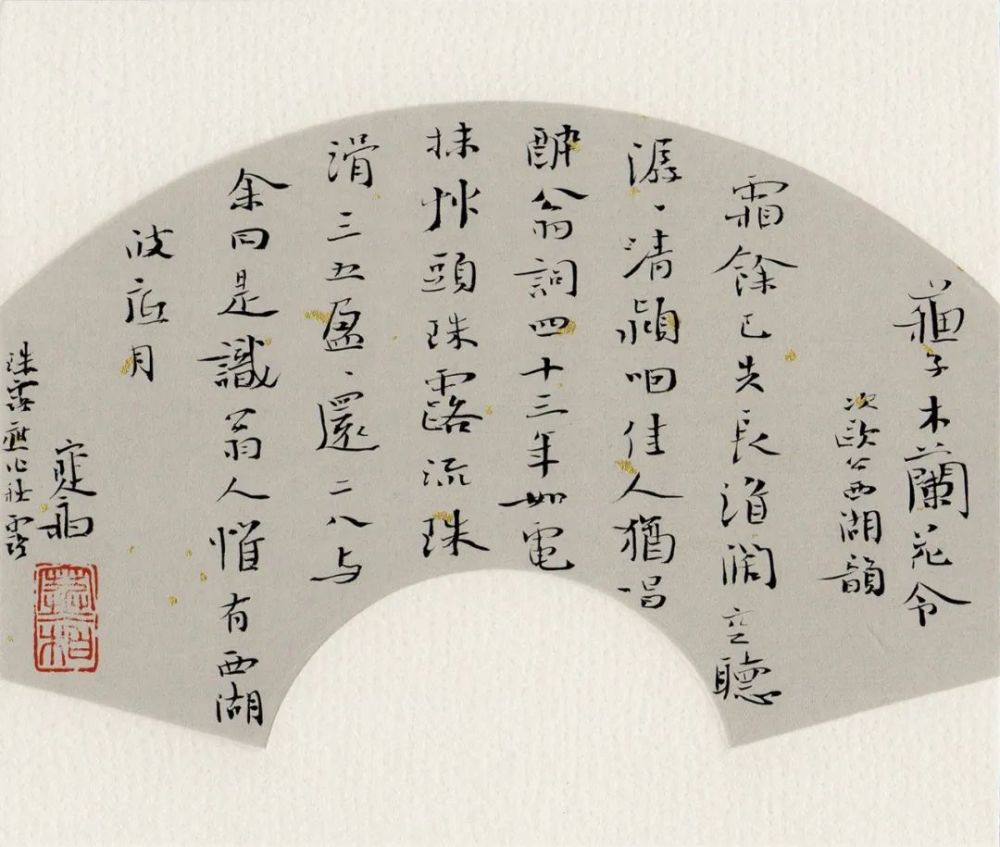 蘓子木蘭花令
次歐公西湖韻
霜餘已失長淮闊空聽
潺、清潁咽佳人猶唱
醉翁詞四十三年如電
抹艸頭珠露流珠
滑三五盈、還二八与
余同是識翁人惟有西湖
波底月
珠露應作秋露